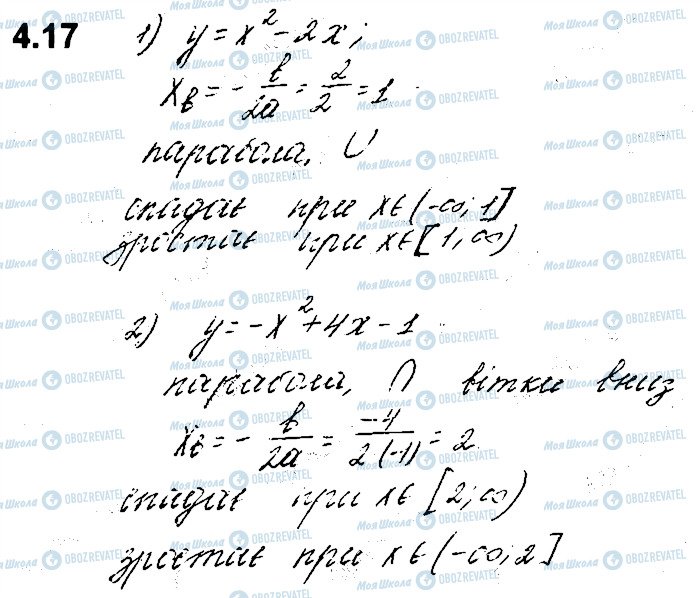 4.17 1) y = x² - 2x;
x_в = - b/2a = 2/2 = 1
парабола, ∪
спадає при x∈(-∞; 1]
зростає при x∈[1; ∞)
2) y = -x² + 4x - 1
парабола, ∩ вітки вниз
x_в = - b/2a = -4/2(-1) = 2
спадає при x∈ [2; ∞)
зростає при x∈(-∞; 2]
Моя Школа OBOZREVATEL